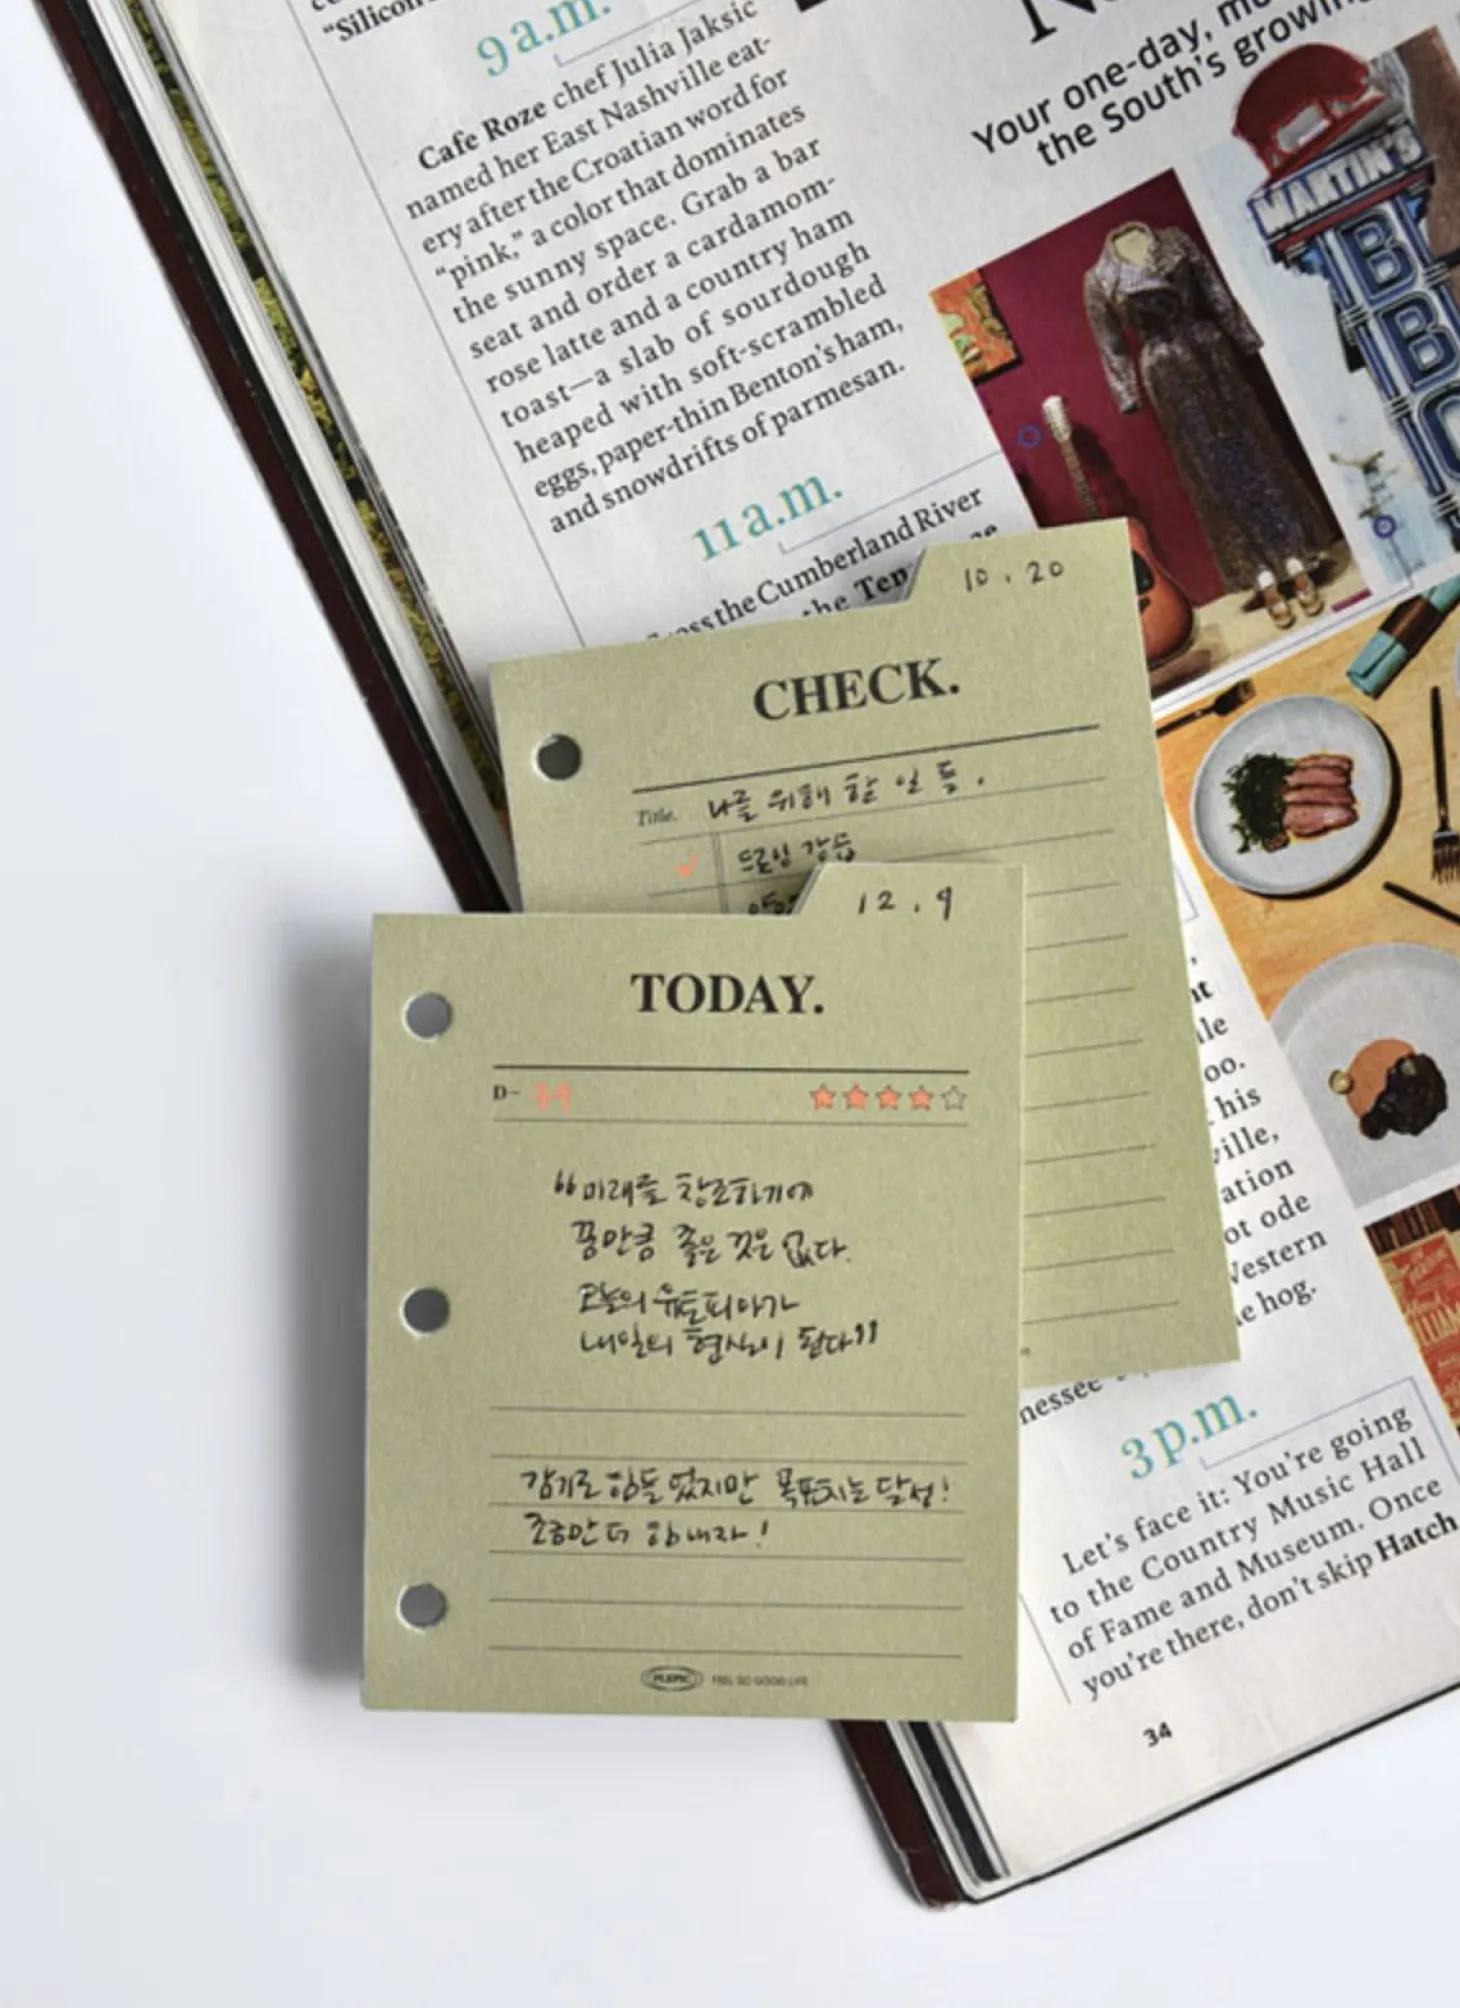 "Silicon
9 a.m.
Cafe Roze chef Julia Jaksic
named her East Nashville eat-
ery after the Croatian word for
"pink," a color that dominates
the sunny space. Grab a bar
seat and order a cardamom-
rose latte and a country ham
toast—a slab of sourdough
heaped with soft-scrambled
eggs, paper-thin Benton's ham,
and snowdrifts of parmesan.
11 a.m.
the Cumberland River
the Ten
Your one-day, mu
the South's growing
MARTIN'S
10.20
CHECK.
Title. 나를 위해 할 일 들.
드로잉 강습
12.9
TODAY.
D-
"미래를 창조하기에
꿈만큼 좋은 것은 없다.
오늘의 유토피아가
내일의 현실이 된다"
감기로 힘들었지만 목표치는 달성!
조금만 더 힘내자!
FEEL SO GOOD LIFE
nt
ile
oo.
his
ville,
ation
ot ode
Western
le hog.
nessee
3 p.m.
Let's face it: You're going
to the Country Music Hall
of Fame and Museum. Once
you're there, don't skip Hatch
34